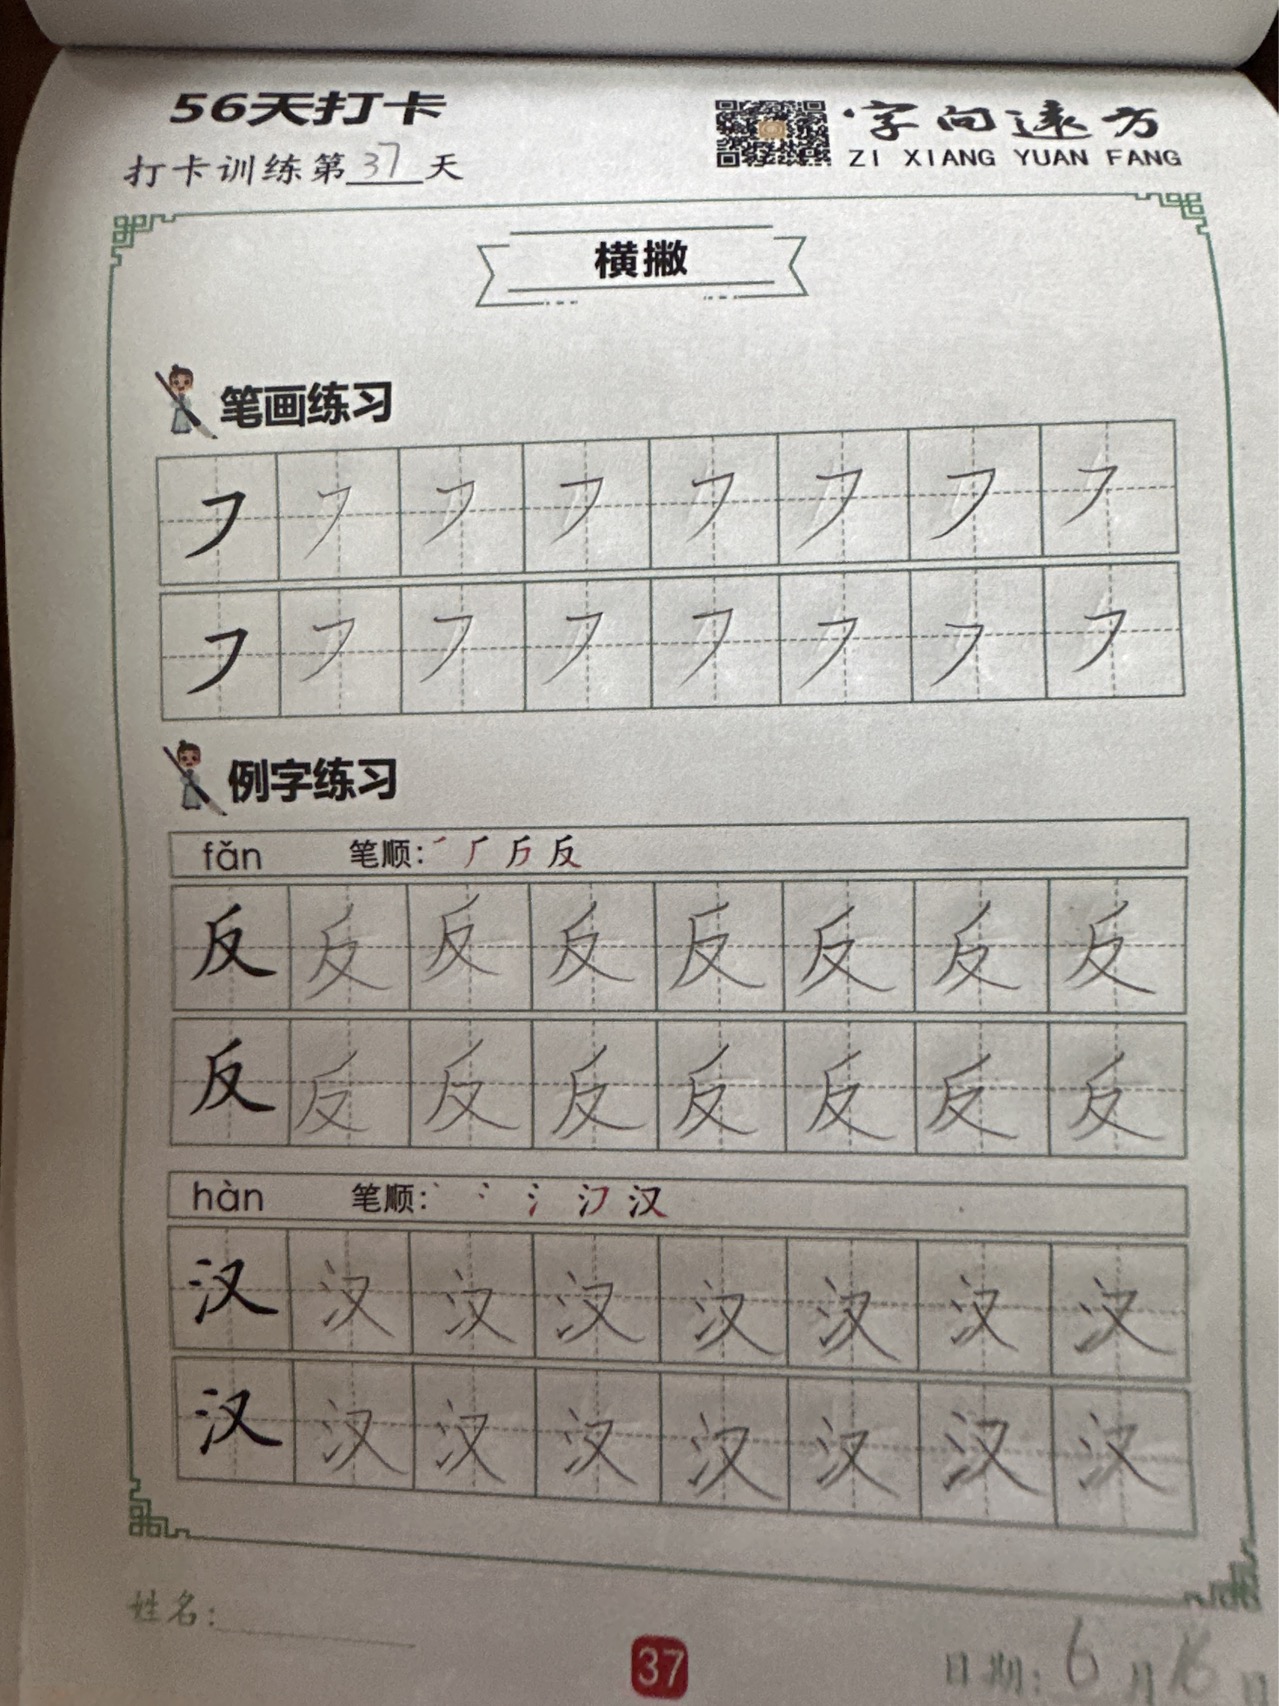 56天打卡
字向远方
ZI XIANG YUAN FANG
打卡训练第37天
横撇
笔画练习
㇇ ㇇ ㇇ ㇇ ㇇ ㇇ ㇇ ㇇
㇇ ㇇ ㇇ ㇇ ㇇ ㇇ ㇇ ㇇
例字练习
fǎn 笔顺: ㇒ 厂 反
反 反 反 反 反 反 反 反
反 反 反 反 反 反 反 反
hàn 笔顺: 丶 冫 氵 汉
汉 汉 汉 汉 汉 汉 汉 汉
汉 汉 汉 汉 汉 汉 汉 汉
姓名:
37
日期: 6月16日